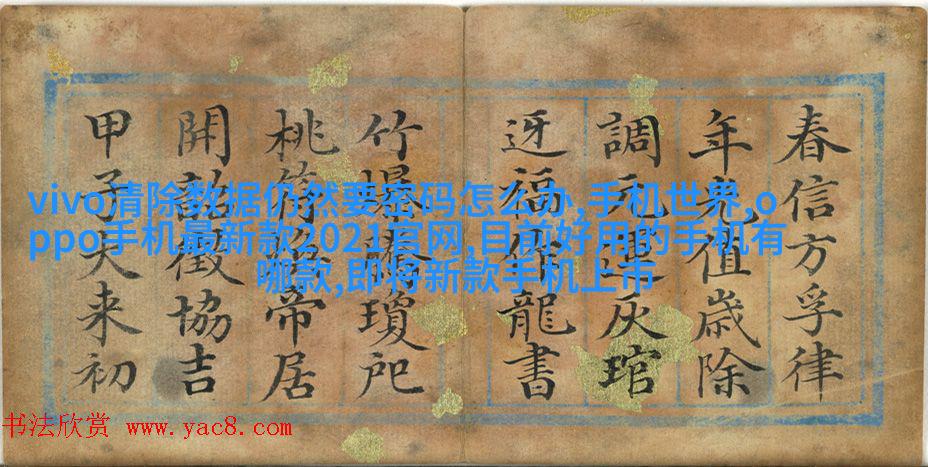 春信方孚律
年光值歲除
調元灰琯
迓福作龍書
竹爆瓊戺
桃符帝居
開韶徵協吉
甲子天来初
vivo清除数据仍然要密码怎么办,手机世界,o
ppo手机最新款2021官网,目前好用的手机有
哪款,即将新款手机上市
书法欣赏 www.yac8.com